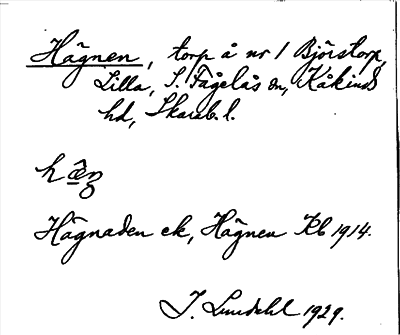 Hägnen, torp å nr 1 Björstorp,
Lilla, S. Fågelås sn, Kåkinds
hd, Skarab. l.
Hägnaden ek, Hägnen Kb 1914.
J. Lundahl 1929.